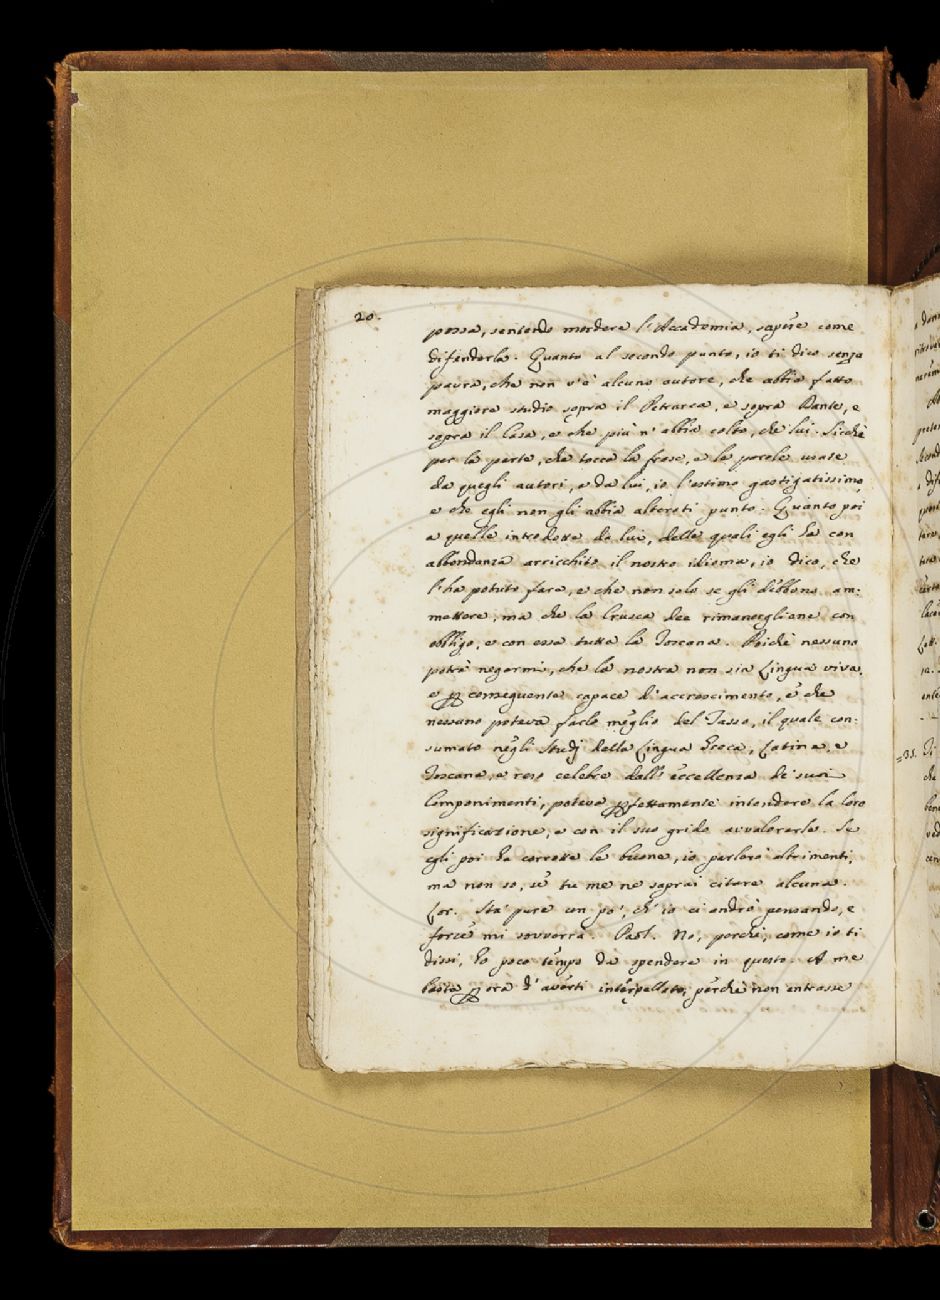 20.
possa, sentendo mordere l'Accademia, sapere come
difenderla. Quanto al secondo punto, io ti dico senza
paura, che non v'è alcuno autore, che abbia fatto
maggiore studio sopra il Petrarca, e sopra Dante, e
sopra il Casa, e che più n'abbia colto, che lui. Sicchè
per la parte, che tocca la frase, e le parole usate
da quegli autori, e da lui, io l'estimo gastigatissimo,
e che egli non gli abbia alterati punto. Quanto poi
a quelle introdotte da lui, delle quali egli ha con
abbondanza arricchito il nostro idioma, io dico, che
l'ha potuto fare, e che non solo se gli debbono am:
mettere; ma che la Crusca dee rimanergliene con
obbligo, e con essa tutta la Toscana. Poichè nessuno
potrà negarmi, che la nostra non sia Lingua viva,
e p conseguente capace d'accrescimento, e che
nessuno poteva farlo meglio del Tasso, il quale con:
sumato negli studj della Lingua Greca, Latina, e
Toscana, e reso celebre dall'eccellenza de' suoi
Componimenti, poteva pfettamente intendere la loro
significazione, e con il suo grido avvalorarle. Se
egli poi ha corrotte le buone, io parlerò altrimenti,
ma non so, se tu me ne saprai citare alcuna.
Lor. Sta' pure un po', ch'io ci andrò pensando, e
forse mi sovverrà. Paol. No, perchè, come io ti
dissi, ho poco tempo da spendere in questo. A me
basta p ora d'averti interpellato, perchè non entrasse
=31. Ti